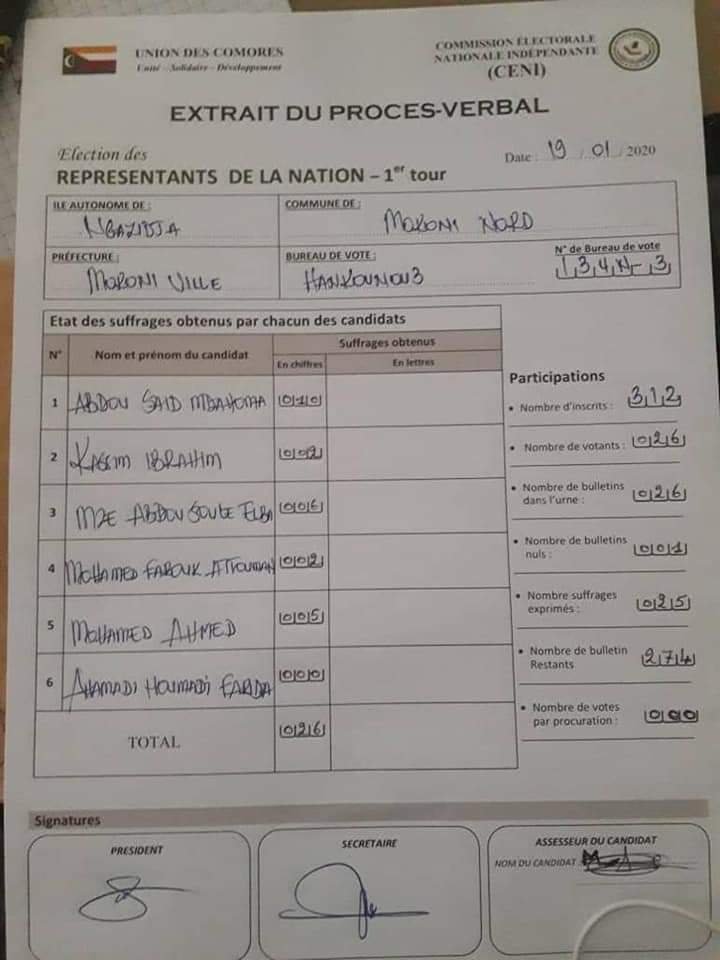 UNION DES COMORES
Unité – Solidarité – Développement
COMMISSION ÉLECTORALE
NATIONALE INDÉPENDANTE
(CENI)
EXTRAIT DU PROCES-VERBAL
Election des
Date : 19 / 01 / 2020
REPRESENTANTS DE LA NATION – 1er tour
ILE AUTONOME DE :
NGAZIDJA
COMMUNE DE :
MORONI NORD
PRÉFECTURE :
MORONI VILLE
BUREAU DE VOTE :
HANKOUNOU3
N° de Bureau de vote
1 3 4 N - 3
Etat des suffrages obtenus par chacun des candidats
N° Nom et prénom du candidat Suffrages obtenus
En chiffres En lettres
1 ABDOU SAID 010
2 KASSIM IBRAHIM 002
3 MZE ABDOU SOULE ELBA 006
4 MOHAMED FAROUK ATTOUMAN 002
5 MOHAMED AHMED 005
6 AHAMADI HOUMADI FARIDA 000
TOTAL 026
Participations
• Nombre d'inscrits : 312
• Nombre de votants : 026
• Nombre de bulletins
dans l'urne : 026
• Nombre de bulletins
nuls : 001
• Nombre suffrages
exprimés : 025
• Nombre de bulletin
Restants 274
• Nombre de votes
par procuration : 000
Signatures
PRESIDENT
SECRETAIRE
ASSESSEUR DU CANDIDAT
NOM DU CANDIDAT